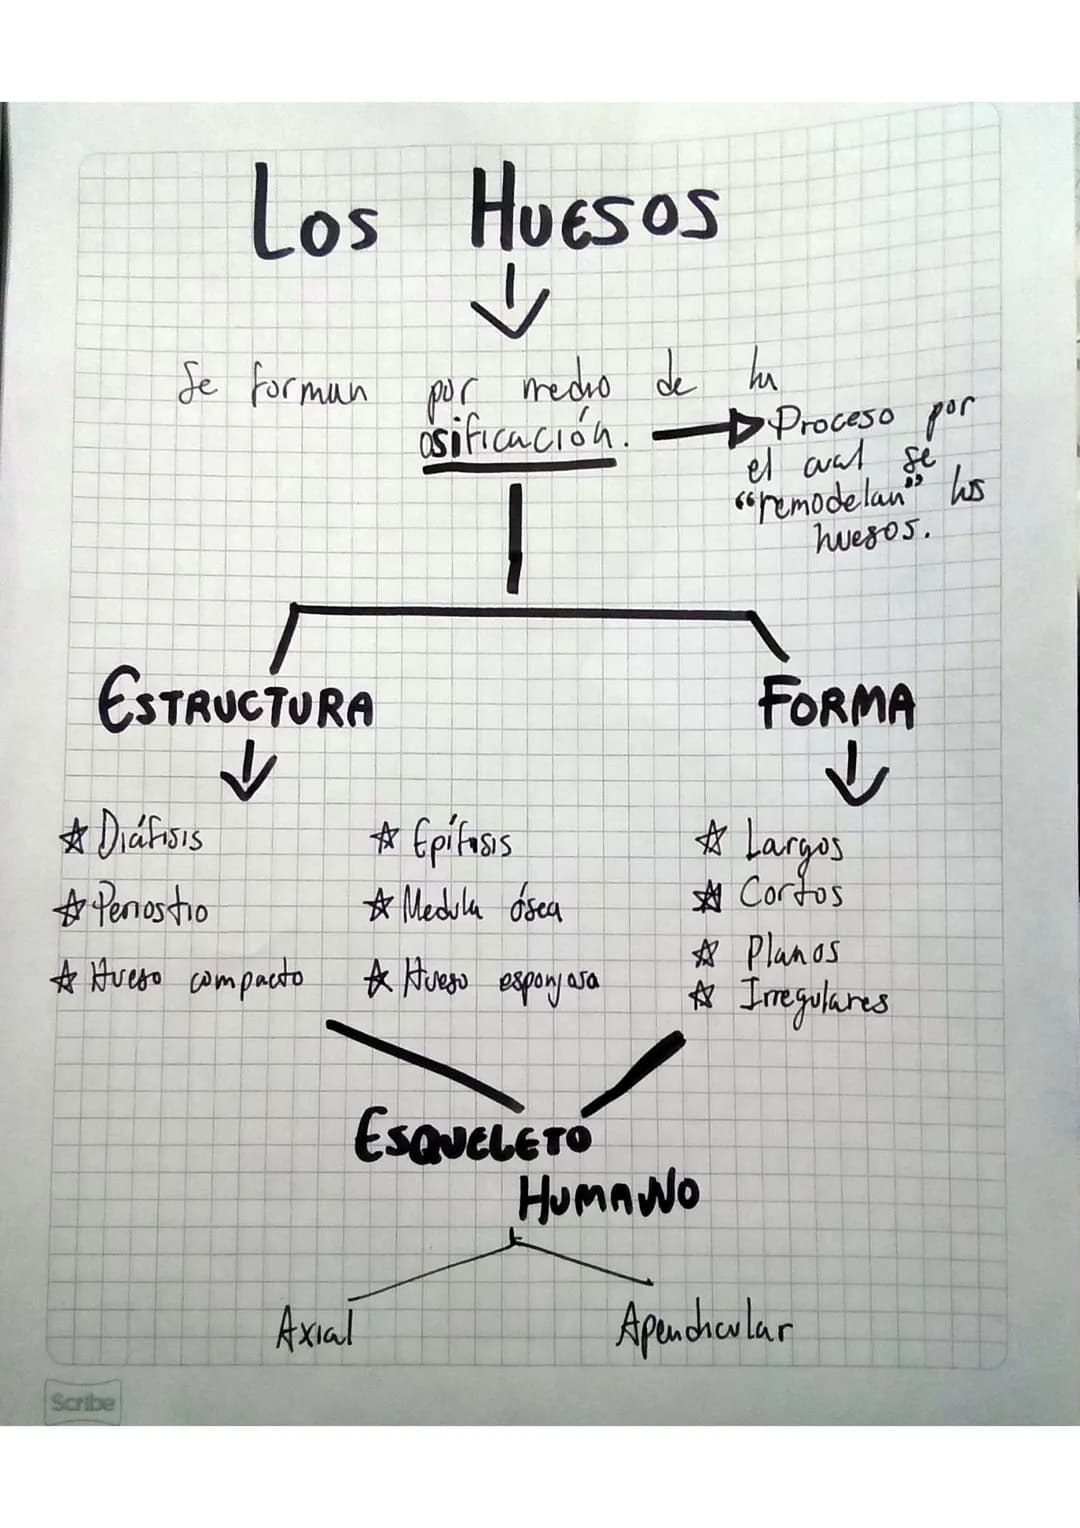 Los Huesos
Se forman por medio de la
osificación.
Proceso por
el cual se
"remodelan" los
huesos.
ESTRUCTURA
FORMA
Diáfisis
Epífisis
Largos
Periostio
Medula ósea
Cortos
Planos
Hueso compacto
Hueso esponjosa
Irregulares
ESQUELETO
HUMANO
Axial
Apendicular
Scribe